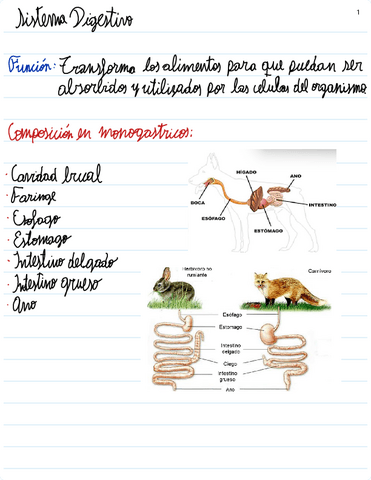 Sistema Digestivo
1
Función: Transforma los alimentos para que puedan ser
absorbidos y utilizados por las celulas del organismo
Composición en monogastricos:
· Cavidad bucal
· Faringe
· Esofago
· Estomago
· Intestino delgado
· Intestino grueso
· Ano
HIGADO
ANO
BOCA
INTESTINO
ESÓFAGO
ESTÓMAGO
Herbívoro no
rumiante
Carnívoro
Esófago
Estomago
Intestino
delgado
Ciego
Intestino
grueso
Ano